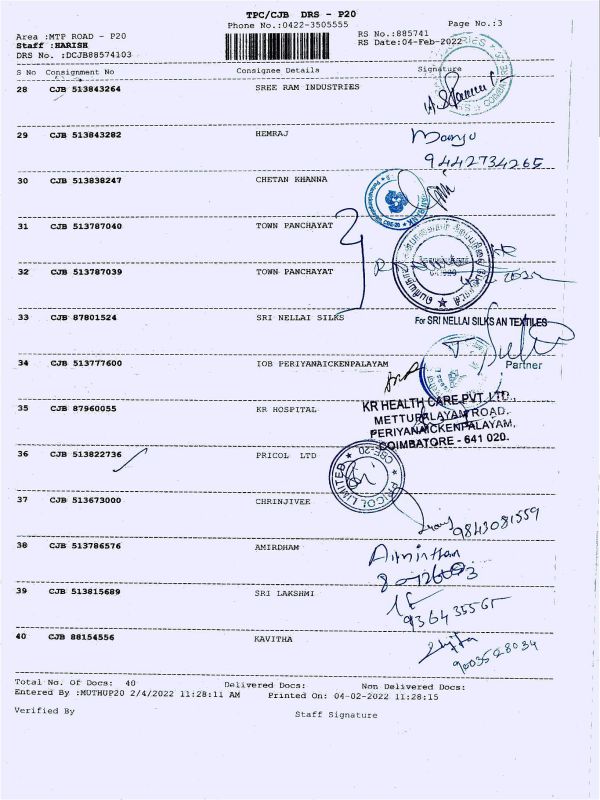 TPC/CJB DRS - P20
Phone No.:0422-3505555
Page No.:3
Area :MTP ROAD - P20
RS No.:885741
Staff :HARISH
RS Date:04-Feb-2022
DRS No. :DCJB88574103
S No Consignment No Consignee Details Signature
28 CJB 513843264 SREE RAM INDUSTRIES
29 CJB 513843282 HEMRAJ
Manju
9442734265
30 CJB 513838247 CHETAN KHANNA
31 CJB 513787040 TOWN PANCHAYAT
32 CJB 513787039 TOWN PANCHAYAT
33 CJB 87801524 SRI NELLAI SILKS
For SRI NELLAI SILKS AN TEXTILES
Partner
34 CJB 513777600 IOB PERIYANAICKENPALAYAM
35 CJB 87960055 KR HOSPITAL
KR HEALTH CARE PVT. LTD.,
METTUPALAYAM ROAD,
PERIYANAICKENPALAYAM,
COIMBATORE - 641 020.
36 CJB 513822736 PRICOL LTD
PRICOL LIMITED CBE-20
37 CJB 513673000 CHRINJIVEE
9843081559
38 CJB 513786576 AMIRDHAM
39 CJB 513815689 SRI LAKSHMI
9364355565
40 CJB 88154556 KAVITHA
9003528034
Total No. Of Docs: 40 Delivered Docs: Non Delivered Docs:
Entered By :MUTHUP20 2/4/2022 11:28:11 AM Printed On: 04-02-2022 11:28:15
Verified By Staff Signature